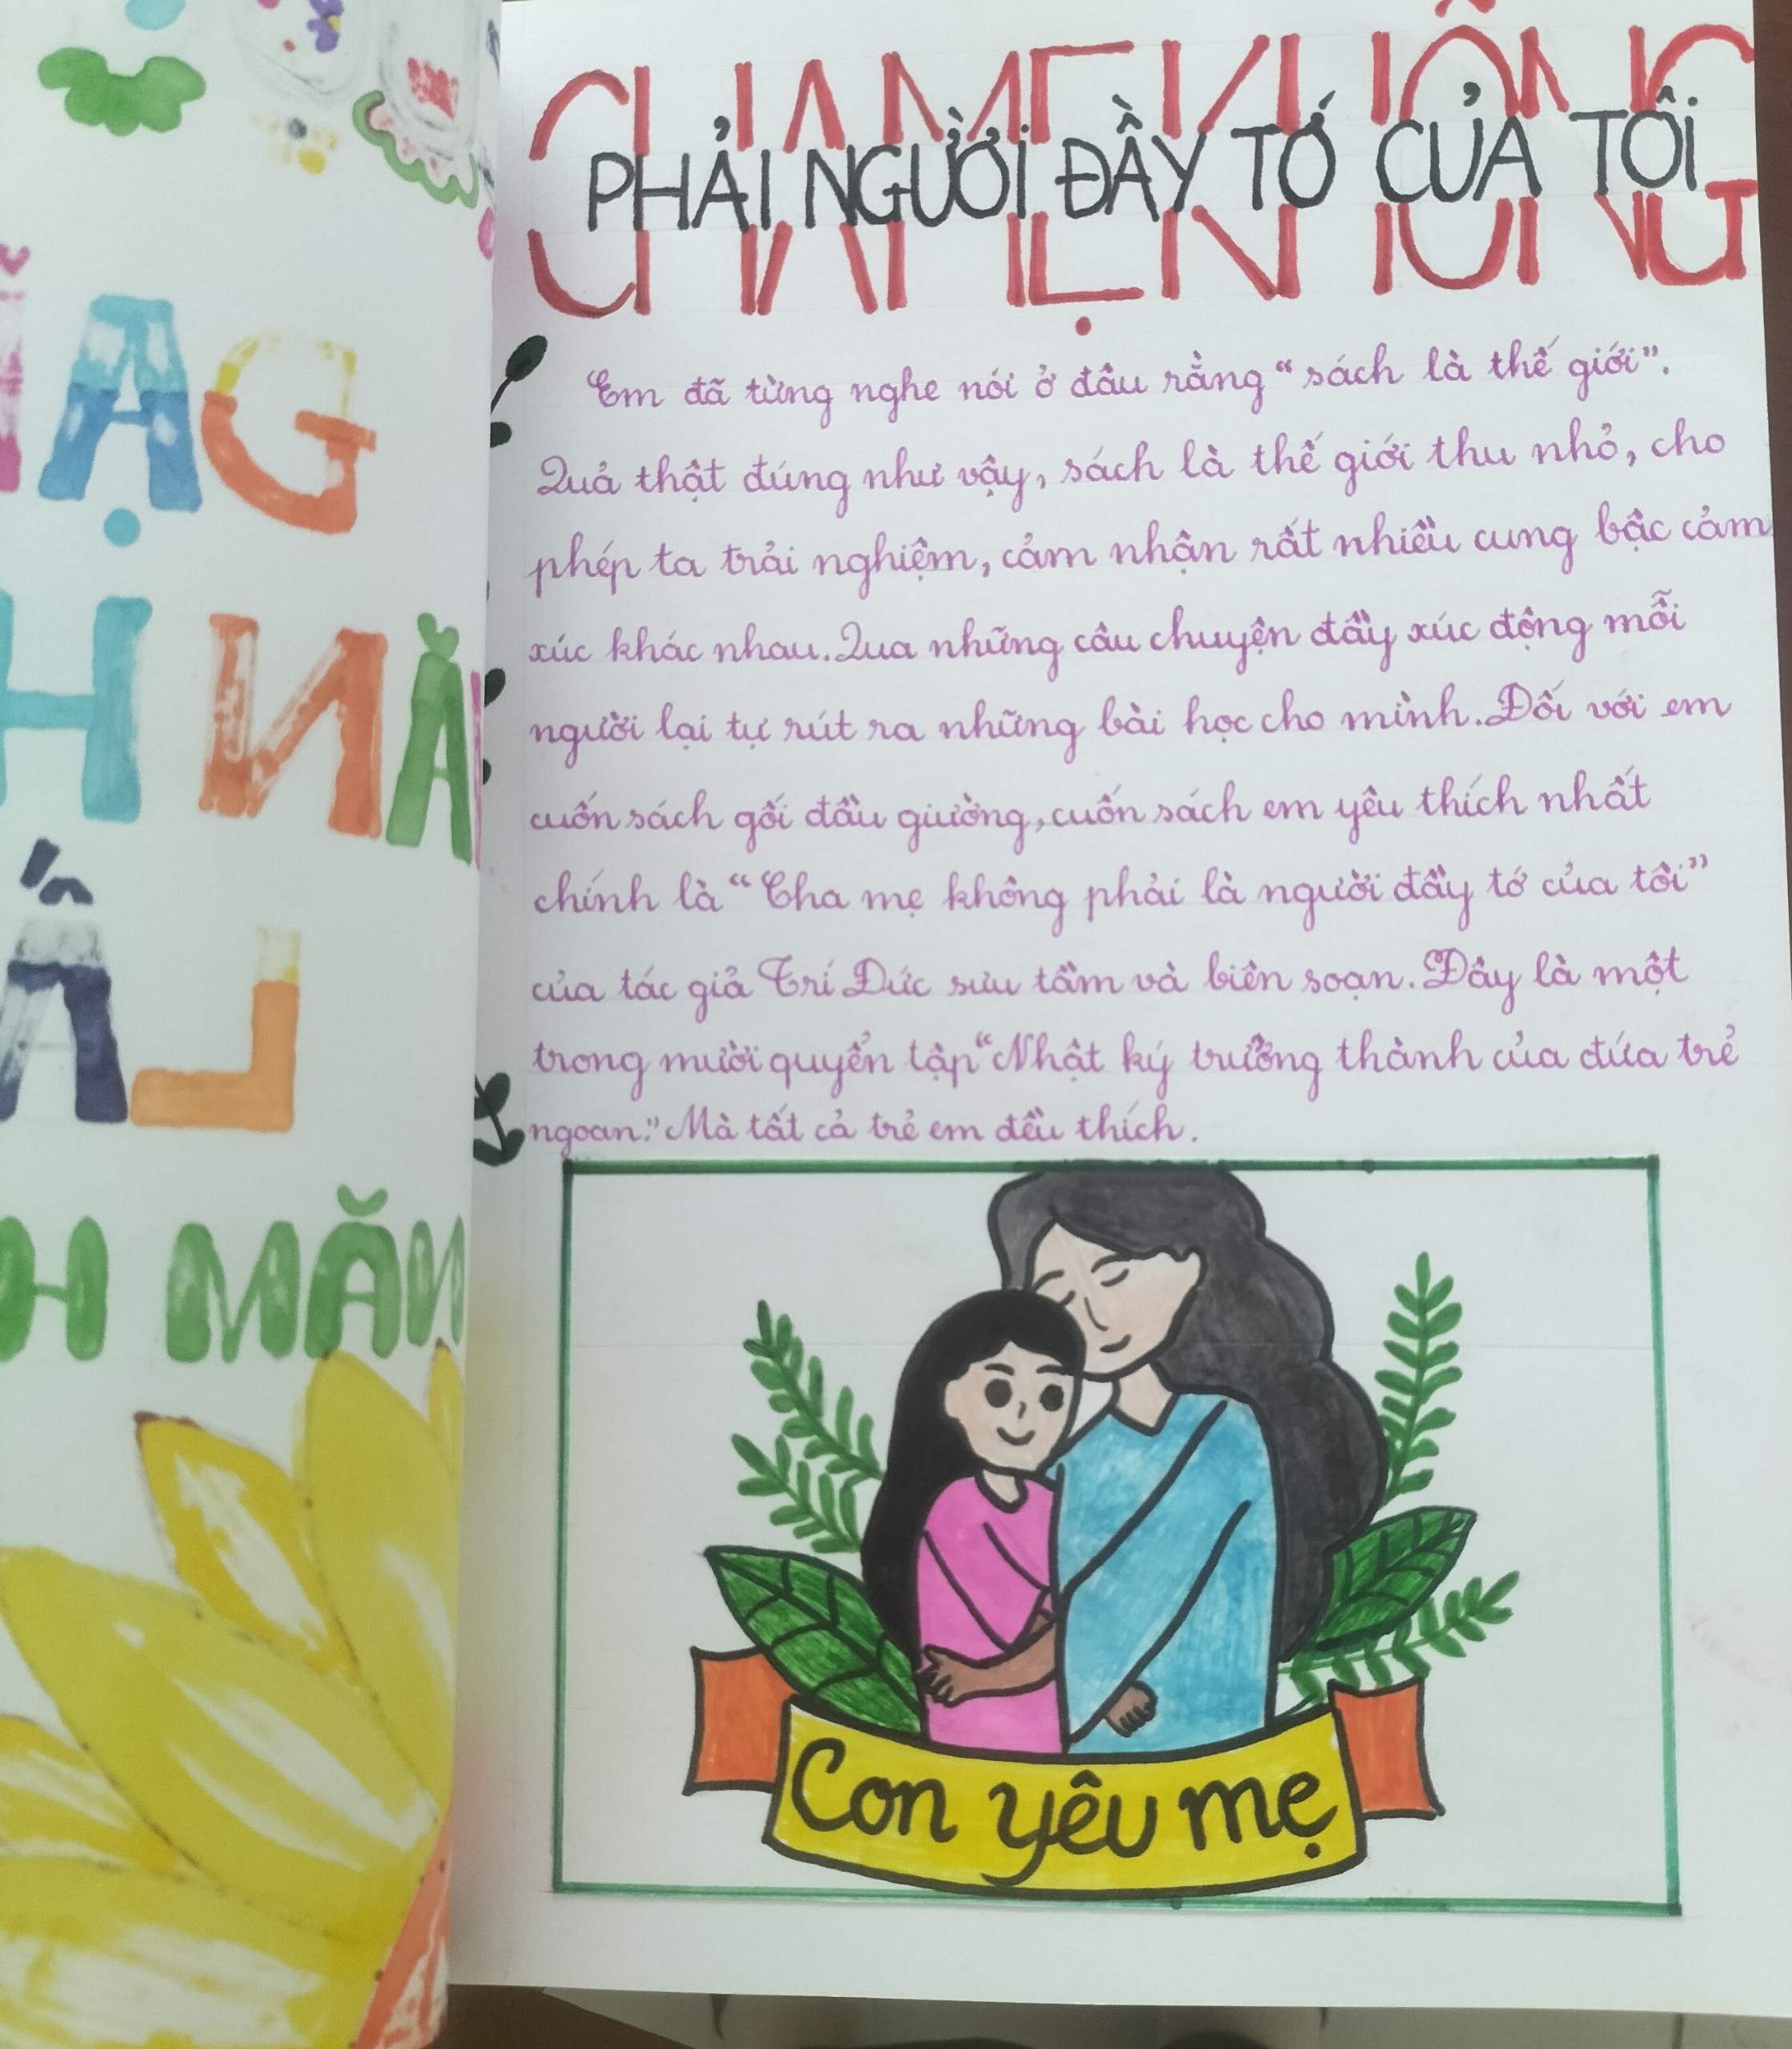 ẠG
H NĂ
H MĂN
CHA MẸ KHÔNG
PHẢI NGƯỜI ĐẦY TỚ CỦA TÔI
Em đã từng nghe nói ở đâu rằng “sách là thế giới”.
Quả thật đúng như vậy, sách là thế giới thu nhỏ, cho
phép ta trải nghiệm, cảm nhận rất nhiều cung bậc cảm
xúc khác nhau. Qua những câu chuyện đầy xúc động mỗi
người lại tự rút ra những bài học cho mình. Đối với em
cuốn sách gối đầu giường, cuốn sách em yêu thích nhất
chính là “Cha mẹ không phải là người đầy tớ của tôi”
của tác giả Trí Đức sưu tầm và biên soạn. Đây là một
trong mười quyển tập “Nhật ký trưởng thành của đứa trẻ
ngoan.” Mà tất cả trẻ em đều thích.
Con yêu mẹ